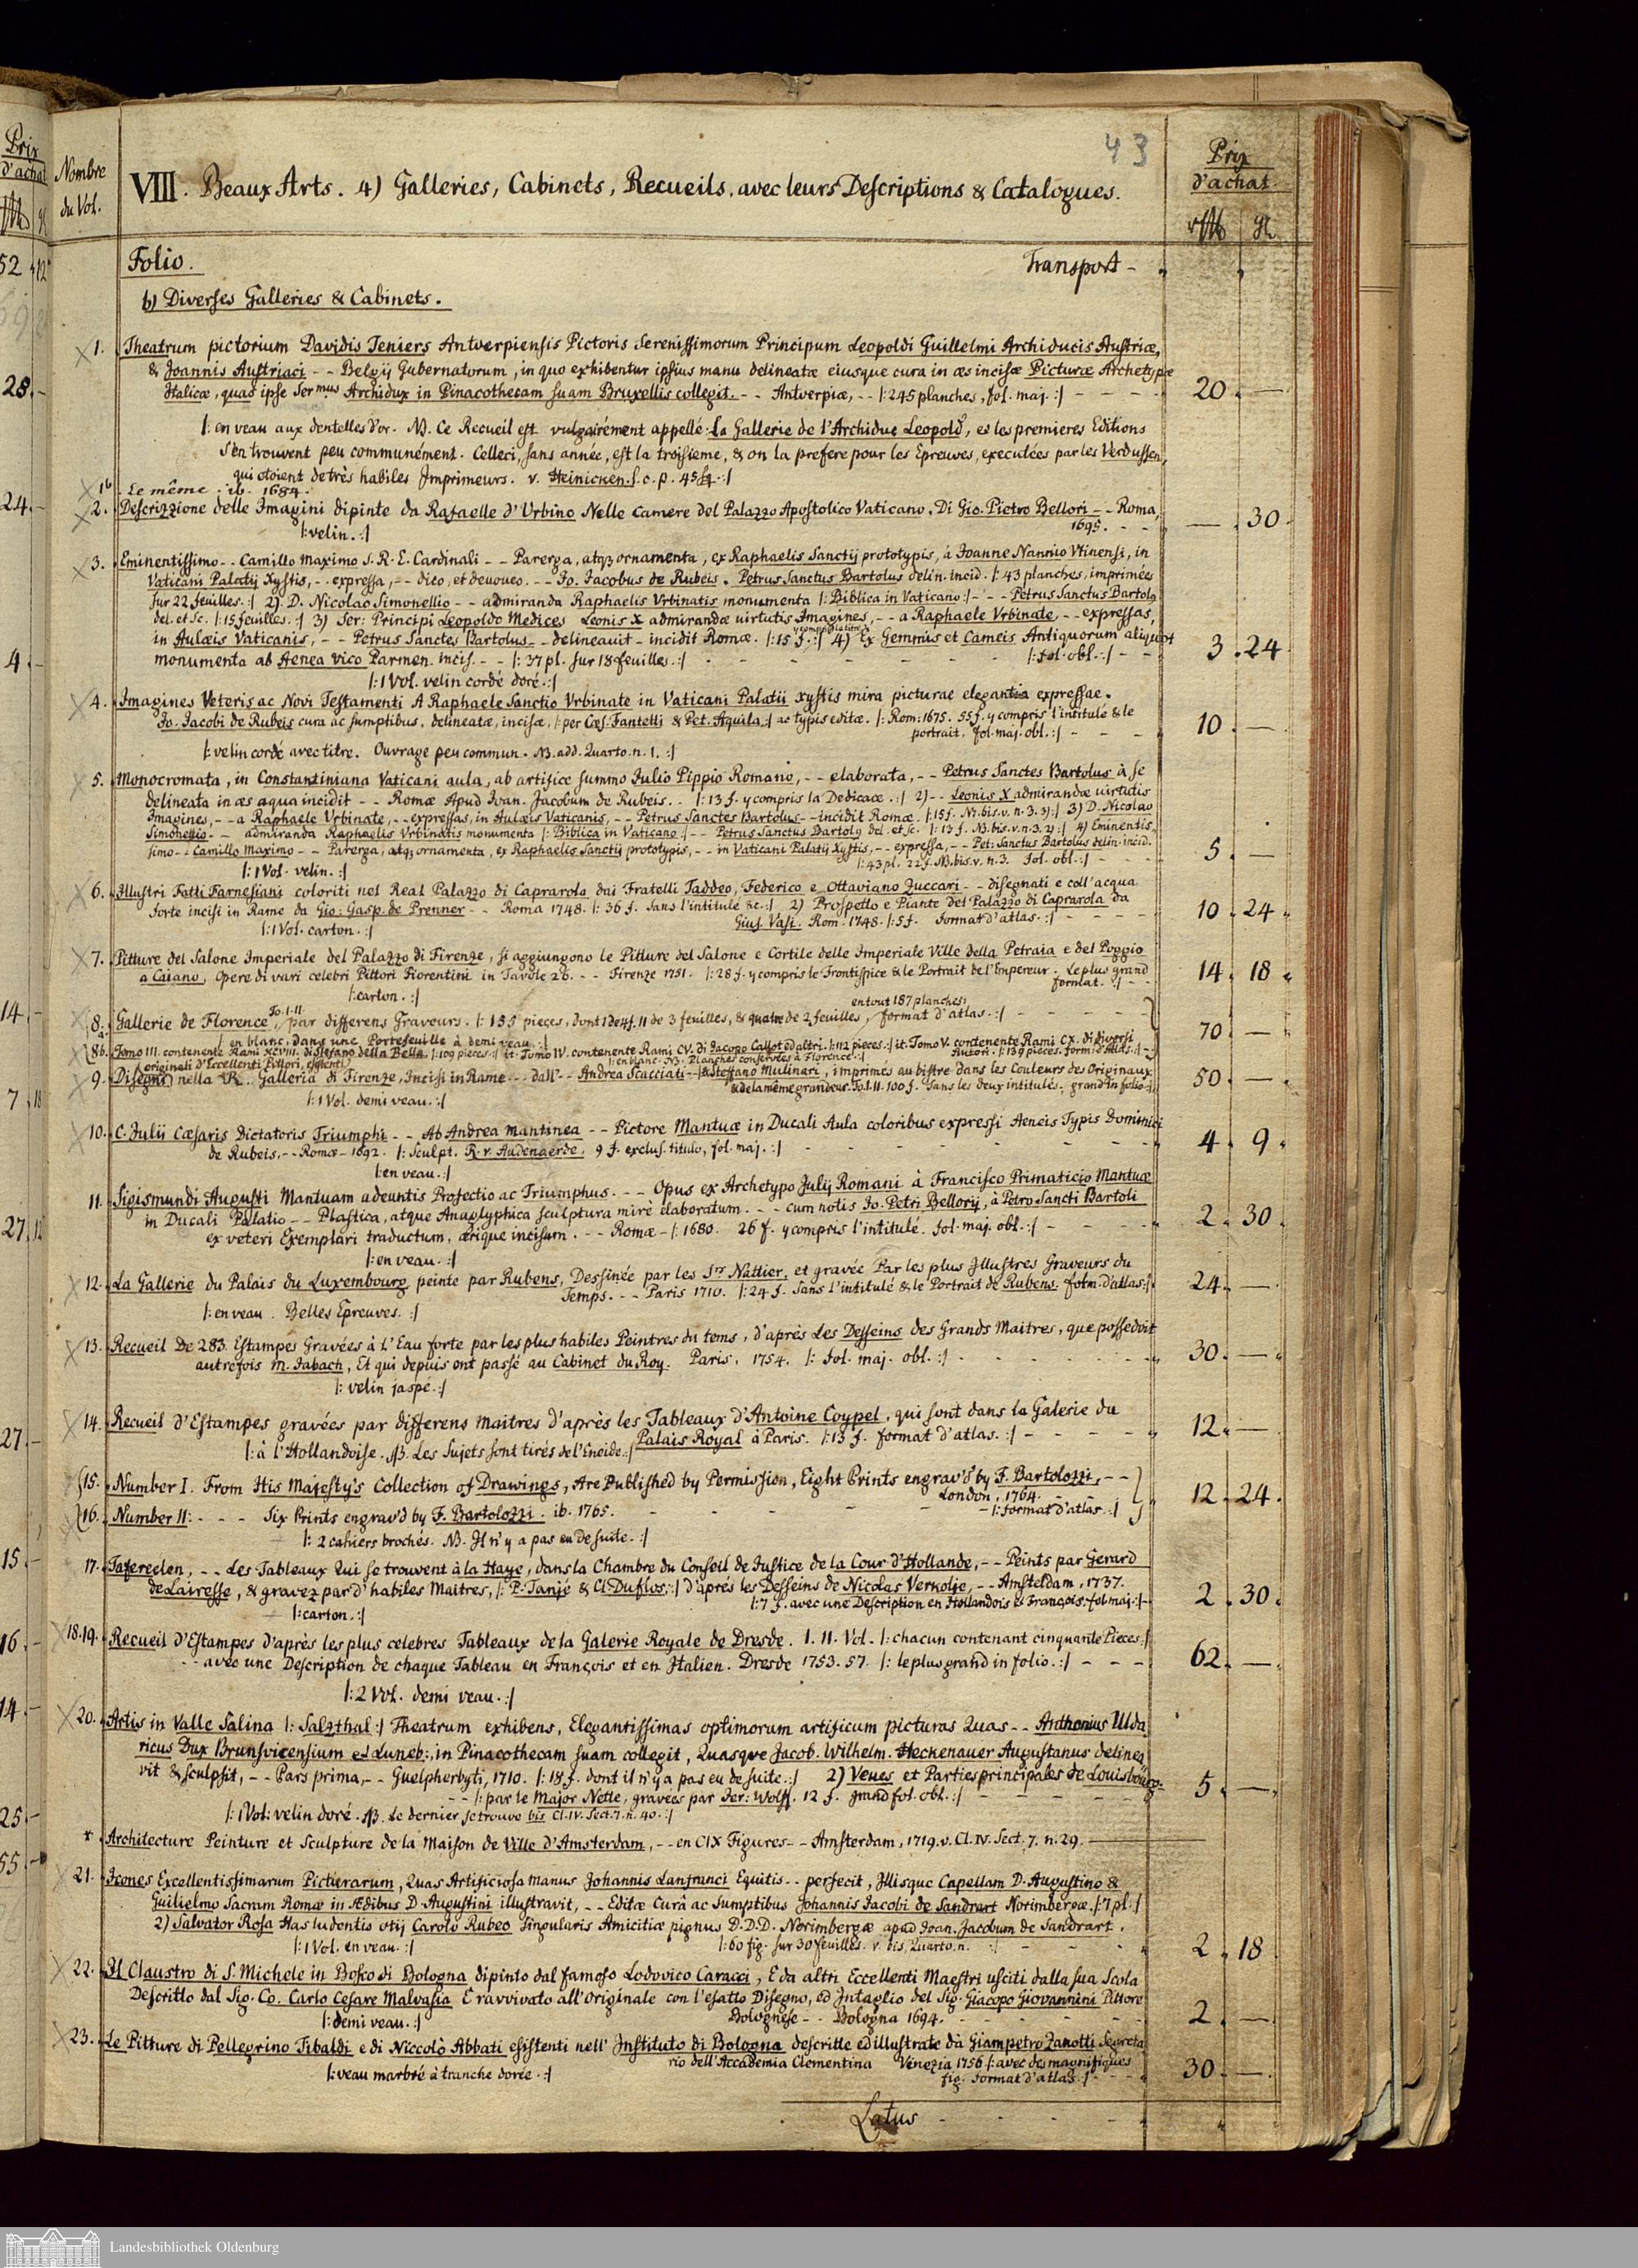 43
Nombre
du Vol.
VIII. Beaux Arts. 4) Galleries, Cabinets, Recueils, avec leurs Descriptions & Catalogues.
Prix
d'achat
Folio.
Transport -
b) Diverses Galleries & Cabinets.
1. Theatrum pictorium Davidis Teniers Antverpiensis Pictoris Serenissimorum Principum Leopoldi Guillelmi Archiducis Austriæ,
& Joannis Austriaci - - Belgij Gubernatorum, in quo exhibentur ipsius manu delineatæ eiusque cura in æs incisæ Picturæ Archetypæ
Italicæ, quas ipse Ser.mus Archidux in Pinacothecam suam Bruxellis collegit. - - Antverpiæ, - - |: 245 planches, fol. maj. :| - - - - 20. —
|: en veau aux dentelles d'or. NB. Ce Recueil est vulgairément appellé: La Gallerie de l'Archiduc Leopold, es les premieres Editions
s'en trouvent peu communément. Celleci, sans année, est la troisieme, & on la prefere pour les Epreuves, executées par les Verdussen,
qui etoient de très habiles Imprimeurs. v. Heinicken. l. c. p. 45 sq. :|
1b. Le même. ib. 1684.
2. Descrizzione delle Imagini dipinte da Rafaelle d'Urbino Nelle Camere del Palazzo Apostolico Vaticano. Di Gio. Pietro Bellori - - Roma,
|: velin. :| 1695. - - — . 30.
3. Eminentissimo - - Camillo Maximo S. R. E. Cardinali - - Parerga, atq3 ornamenta, ex Raphaelis Sanctij prototypis, à Joanne Nannio Vtinensi, in
Vaticani Palatij Xystis, - - expressa, - - dico, et deuoueo. - - Jo. Jacobus de Rubeis. Petrus Sanctus Bartolus delin. incid. |: 43 planches, imprimées
sur 22 feuilles. :| 2). D. Nicolao Simonellio - - admiranda Raphaelis Vrbinatis monumenta |: Biblica in Vaticano :| - - - Petrus Sanctus Bartolg
del. et Sc. |: 15 feuilles. :| 3) Ser: Principi Leopoldo Medices Leonis X admirandæ uirtutis Imagines, - - a Raphaele Vrbinate, - - expressas,
in Aulæis Vaticanis, - - Petrus Sanctes Bartolus - - delineauit - incidit Romæ. |: 15 f. y compris le titre :| 4) Ex Gemmis et Cameis Antiquorum aliquot
monumenta ab Aenea Vico Parmen. incis. - - |: 37 pl. sur 18 feuilles. :| - - - - - - |: fol. obl. :| - - 3. 24
|: 1 Vol. velin cordé doré. :|
4. Imagines Veteris ac Novi Testamenti A Raphaele Sanctio Vrbinate in Vaticani Palatii xystis mira picturae elegantia expressae.
Jo. Jacobi de Rubeis cura ac sumptibus, delineatæ, incisæ, |: per Cæs. Fantetti & Pet. Aquila :| ac typis editæ. |: Rom: 1675. 55 f. y compris l'intitulé & le
portrait. fol. maj. obl. :| - - - 10. —
|: velin cordé avec titre. Ouvrage peu commun. NB. add. Quarto. n. 1. :|
5. Monocromata, in Constantiniana Vaticani aula, ab artifice summo Julio Pippio Romano, - - elaborata, - - Petrus Sanctes Bartolus à se
delineata in æs aqua incidit - - Romæ Apud Joan. Jacobum de Rubeis. . |: 13 f. y compris la Dedicace. :| 2) - - Leonis X admirandæ uirtutis
Imagines, - - a Raphaele Vrbinate, - - expressas, in Aulæis Vaticanis, - - Petrus Sanctes Bartolus - - incidit Romæ. |: 15 f. NB. bis. v. n. 3. 3) :| 3) D. Nicolao
Simonellio - - admiranda Raphaelis Vrbinatis monumenta |: Biblica in Vaticano :| - - Petrus Sanctus Bartolg del. et Sc. |: 13 f. NB. bis. v. n. 3. 2) :| 4) Eminentis-
simo - - Camillo Maximo - - Parerga, atq3 ornamenta, ex Raphaelis Sanctij prototypis, - - in Vaticani Palatij Xystis, - - expressa, - - Pet: Sanctus Bartolus delin. incid.
|: 1 Vol. velin. :| |: 43 pl. 22 f. NB. bis. v. n. 3. fol. obl. :| - - - 5. —
6. Illustri Fatti Farnesiani coloriti nel Real Palazzo di Caprarola dai Fratelli Taddeo, Federico e Ottaviano Zuccari - - disegnati e coll'acqua
forte incisi in Rame da Gio: Gasp. de Prenner - - Roma 1748. |: 36 f. sans l'intitulé &c. :| 2) Prospetto e Piante del Palazzo di Caprarola da
|: 1 Vol. carton. :| Gius. Vasi. Rom. 1748. |: 5 f. Format d'atlas. :| - - - - 10. 24.
7. Pitture del Salone Imperiale del Palazzo di Firenze, si aggiungono le Pitture del Salone e Cortile delle Imperiale Ville della Petraia e del Poggio
a Caiano, Opere di vari celebri Pittori Fiorentini in Tavole 26. - - Firenze 1751. |: 28 f. y compris le Frontispice & le Portrait de l'Empereur. Le plus grand
format. :| - - 14. 18.
|: carton. :|
8. Gallerie de Florence To. I-II. par differens Graveurs. |: 155 pieces, dont 1 de 4 f. 11 de 3 feuilles, & quatre de 2 feuilles, en tout 187 planches; format d'atlas. :| - - - 70. —
en blanc, dans une Portefeuille à demi veau. :|
8b. Tomo III. contenente Rami XCVIII. di Stefano della Bella. |: 109 pieces :| it. Tomo IV. contenente Rami CV. di Jacopo Callot ed altri. |: 112 pieces. :| it. Tomo V. contenente Rami CX. di diversi
Autori. |: 139 pieces. form. d'Atlas. :|
|: en blanc. NB. Planches conservées à Florence. :|
9. Disegni originali d'Eccellenti Pittori, esistenti nella R. Galleria di Firenze, Incisi in Rame - - - dall' - - Andrea Scacciati - - & Steffano Mulinari, imprimés au bistre dans les Couleurs des Originaux
& de la même grandeur. To. I. II. 100 f. sans les deux intitulés, grand in folio. :| 50. —
|: 1 Vol. demi veau. :|
10. C. Julii Cæsaris Dictatoris Triumphi - - Ab Andrea Mantinea - - Pictore Mantuæ in Ducali Aula coloribus expressi Aeneis Typis Dominici
de Rubeis. - - Romæ - 1692. |: Sculpt. R. v. Audenaerde. 9 f. exclus. titulo, fol. maj. :| - - - - - - 4. 9.
|: en veau. :|
11. Sigismundi Augusti Mantuam adeuntis Profectio ac Triumphus. - - Opus ex Archetypo Julij Romani à Francisco Primaticio Mantuæ
in Ducali Palatio - - Plastica, atque Anaglyphica sculptura mirè elaboratum. - - - cum notis Jo. Petri Bellorij, à Petro Sancti Bartoli
ex veteri Exemplari traductum, ærique incisum. - - Romæ - |: 1680. 26 f. y compris l'intitulé. fol. maj. obl. :| - - - - 2. 30.
|: en veau. :|
12. La Gallerie du Palais du Luxembourg peinte par Rubens, Dessinée par les Srs Nattier, et gravée Par les plus Illustres Graveurs du
Temps. - - Paris 1710. |: 24 f. sans l'intitulé & le Portrait de Rubens. form. d'atlas :|. 24. —
|: en veau. Belles Epreuves. :|
13. Recueil De 283 Estampes Gravées à l'Eau forte par les plus habiles Peintres du tems, d'après Les Desseins des Grands Maitres, que possedoit
autrefois M. Jabach, Et qui depuis ont passé au Cabinet du Roy. Paris. 1754. |: fol. maj. obl. :| - - - - - 30. —
|: velin jaspé. :|
14. Recueil d'Estampes gravées par differens maitres d'après les Tableaux d'Antoine Coypel, qui sont dans la Galerie du
Palais Royal à Paris. |: 13 f. format d'atlas. :| - - - - - 12. —
|: à l'Hollandoise. NB. Les Sujets sont tirés de l'Eneide. :|
15. Number I. From His Majesty's Collection of Drawings, Are Published by Permission, Eight Prints engrav'd by F. Bartolozzi, - -
London, 1764. - 12. 24.
16. Number II: - - - Six Prints engrav'd by F. Bartolozzi. ib. 1765. - - - - - |: format d'atlas. :|
|: 2 cahiers brochés. NB. Il n'y a pas eu de suite. :|
17. Tafereelen, - - Les Tableaux Qui se trouvent à la Haye, dans la Chambre du Conseil de Justice de la Cour d'Hollande, - - Peints par Gerard
de Lairesse, & gravez par d'habiles Maitres, |: P. Tanjé & Cl. Duflos. :| d'après les Desseins de Nicolas Verkolje, - - Amsteldam, 1737.
|: 7 f. avec une Description en Hollandois et François. fol. maj. :| - 2. 30.
|: carton. :|
18.19. Recueil d'Estampes d'après les plus celebres Tableaux de la Galerie Royale de Dresde. I. II. Vol. |: chacun contenant cinquante Pieces :|
- - avec une Description de chaque Tableau en François et en Italien. Dresde 1753. 57. |: le plus grand in folio. :| - - - 62. —
|: 2 Vol. demi veau. :|
20. Artis in Valle Salina |: Salzthal :| Theatrum exhibens, Elegantissimas optimorum artificum picturas Quas - - Anthonius Ulda-
ricus Dux Brunsvicensium et Luneb:, in Pinacothecam suam collegit, Quasque Jacob. Wilhelm. Heckenauer Augustanus delinea-
vit & sculpsit, - - Pars prima, - - Guelpherbyti, 1710. |: 18 f. dont il n'y a pas eu de suite. :| 2) Veues et Parties principales de Louisbourg.
- - |: par le Major Nette, gravées par Jer: Wolff. 12 f. grand fol. obl. :| - - - - 5. —
|: 1 Vol: velin doré. NB. Le dernier se trouve bis Cl. IV. Sect. 7. n. 40. :|
* Architecture Peinture et Sculpture de la Maison de Ville d'Amsterdam, - - en CIX Figures - - Amsterdam, 1719. v. Cl. IV. Sect. 7. n. 29. —
21. Icones Excellentissimarum Picturarum, Quas Artificiosa manus Johannis Lanfranci Equitis - - perfecit, Illisque Capellam D. Augustino &
Guilielmo Sacram Romæ in Ædibus D. Augustini illustravit, - - Editæ Curâ ac Sumptibus Johannis Jacobi de Sandrart Norimbergæ. |: 7 pl. :|
2) Salvator Rosa Has ludentis otij Carolo Rubeo singularis Amicitiæ pignus D.D.D. Norimbergæ apud Joan. Jacobum de Sandrart.
|: 1 Vol. en veau. :| |: 60 fig. sur 30 feuilles. v. bis, Quarto. n. :| - - - - 2. 18
22. Il Claustro di S. Michele in Bosco di Bologna dipinto dal famoso Lodovico Caracci, E da altri Eccellenti Maestri usciti dalla sua Scola
Descritto dal Sig. Co. Carlo Cesare Malvasia E ravvivato all'Originale con l'esatto Disegno, ed Intaglio del Sig. Giacopo Giovannini Pittore
|: demi veau. :| Bolognese - - Bologna 1694. - - - - - 2. —
23. Le Pitture di Pellegrino Tibaldi e di Niccolò Abbati esistenti nell' Instituto di Bologna descritte ed illustrate da Giampetro Zanotti Segreta-
rio dell'Accademia Clementina Venezia 1756 |: avec des magnifiques
|: veau marbré à tranche dorée. :| fig. format d'atlas. :| - - - 30. —
Latus - - - -
Landesbibliothek Oldenburg